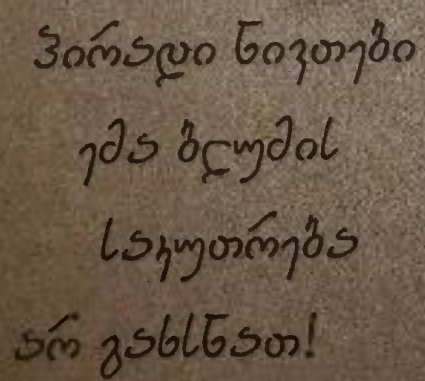 პირადი ნივთები
ემა ბლუმის
საკუთრება
არ გახსნათ!